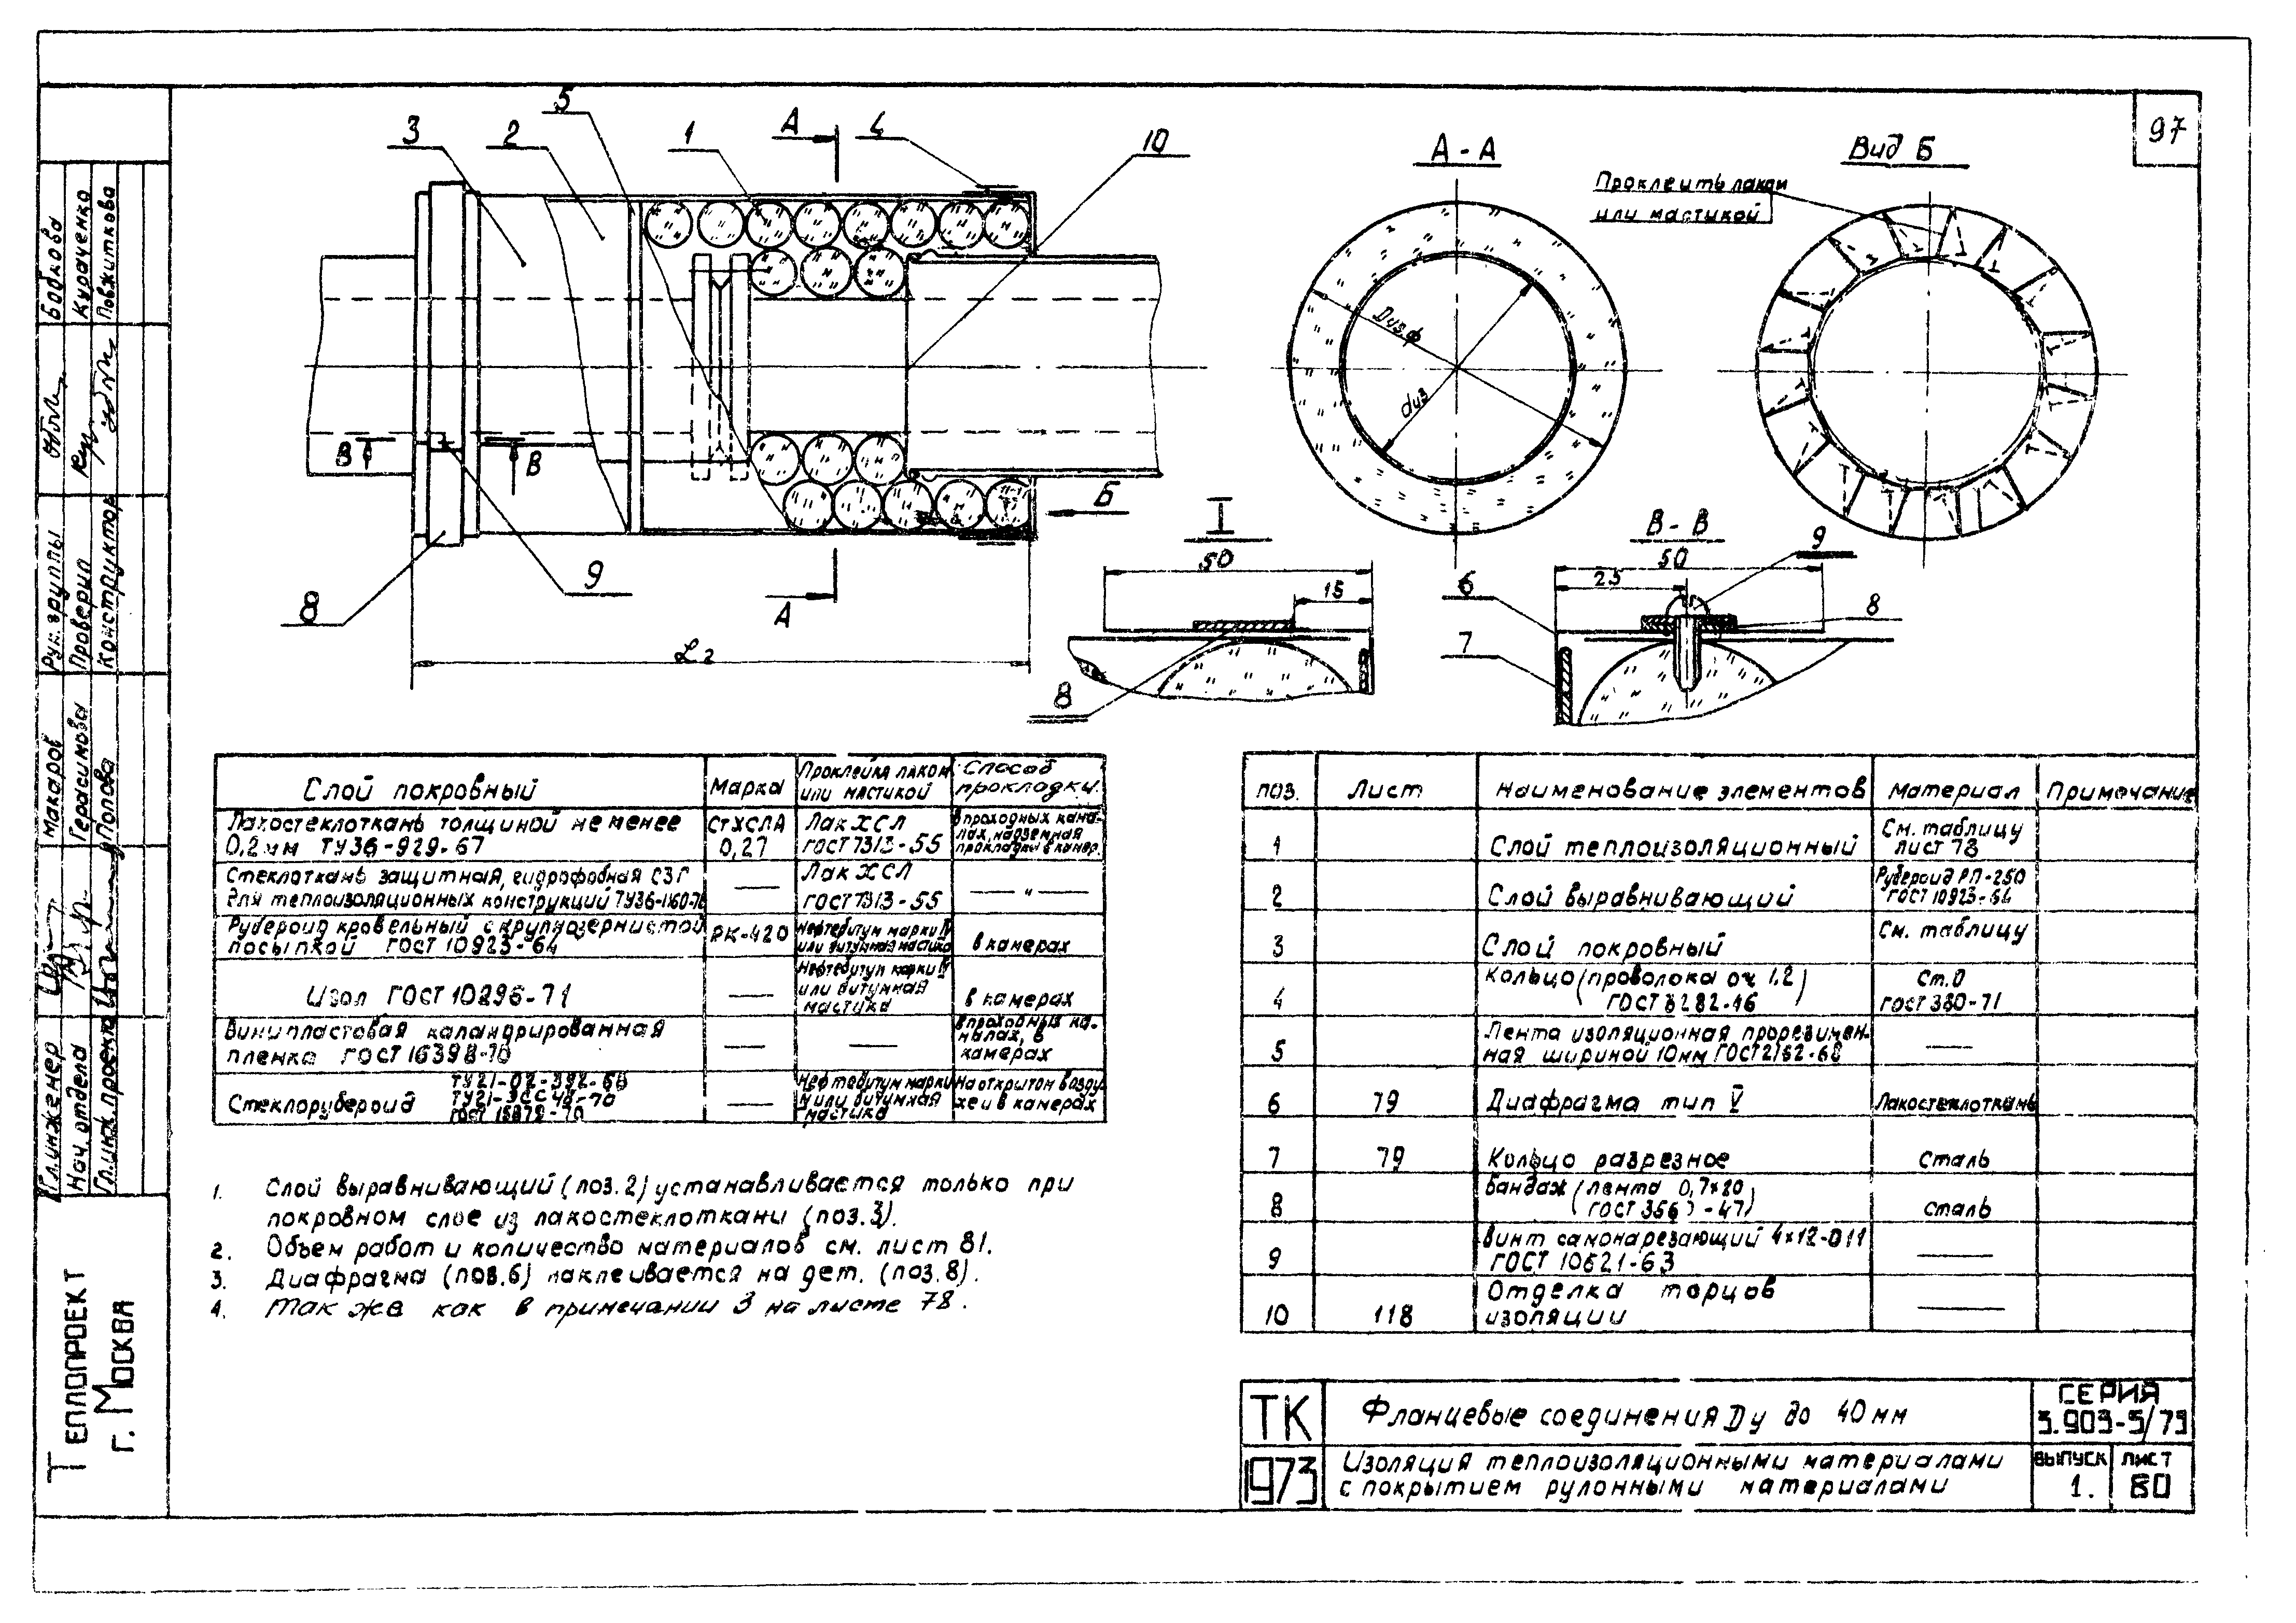 97
5
3
2
1
А
4
10
А - А
Вид Б
Проклеить лаком
или мастикой
Dиз ф
dиз
В
В
Б
I
В - В
9
8
А
50
15
8
50
25
9
6
8
7
L2
Слой покровный Марка Проклейка лаком или мастикой Способ прокладки
Лакостеклоткань толщиной не менее
0,2мм ТУ36-929-67
СТХСЛА
0,27
Лак ХСЛ
ГОСТ 7313-55
в проходных кана-
лах, надземная
прокладка в камер.
Стеклоткань защитная, гидрофобная СЗГ
для теплоизоляционных конструкций ТУ36-1160-70
—
Лак ХСЛ
ГОСТ 7313-55
— " —
Рубероид кровельный с крупнозернистой
посыпкой ГОСТ 10923-64
РК-420
Нефтебитум марки IV
или битумная мастика
в камерах
Изол ГОСТ 10296-71
—
Нефтебитум марки IV
или битумная
мастика
в камерах
Винипластовая каландрированная
пленка ГОСТ 16398-70
—
—
в проходных ка-
налах, в
камерах
Стеклорубероид
ТУ21-02-392-68
ГОСТ 15879-70
—
Нефтебитум марки
IV или битумная
мастика
На открытом возду-
хе и в камерах
1. Слой выравнивающий (поз.2) устанавливается только при
покровном слое из лакостеклоткани (поз.3).
2. Объем работ и количество материалов см. лист 81.
3. Диафрагма (поз.6) наклеивается на дет. (поз.8).
4. Так же как в примечании 3 на листе 78.
поз. Лист Наименование элементов Материал Примечание
1 Слой теплоизоляционный См. таблицу
лист 78
2 Слой выравнивающий Рубероид РП-250
ГОСТ 10923-64
3 Слой покровный См. таблицу
4 Кольцо (проволока оч. 1,2)
ГОСТ 3282-46
Ст.0
ГОСТ 380-71
5 Лента изоляционная прорезинен-
ная шириной 10мм ГОСТ 2162-68
—
6 79 Диафрагма тип V Лакостеклоткань
7 79 Кольцо разрезное сталь
8 Бандаж (лента 0,7×20
ГОСТ 3560-47)
сталь
9 Винт самонарезающий 4×12-011
ГОСТ 10621-63
—
10 118 Отделка торцов
изоляции
—
ТК
1973
Фланцевые соединения Dу до 40 мм
Изоляция теплоизоляционными материалами
с покрытием рулонными материалами
СЕРИЯ
3.903-5/73
ВЫПУСК
1.
ЛИСТ
80
Гл. инженер Макаров
Нач. отдела Герасимова
Гл. инж. проекта Попова
Рук. группы Бобкова
Проверил Кураченко
Конструктор Повжиткова
ТЕПЛОПРОЕКТ
г. МОСКВА